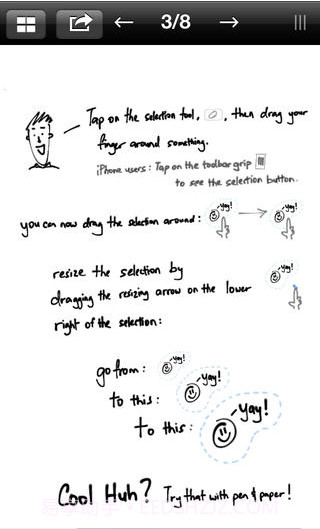 3/8
Tap on the selection tool, , then drag your
finger around something.
iPhone users: Tap on the toolbar grip
to see the selection button.
you can now drag the selection around: yay! yay!
resize the selection by yay!
dragging the resizing arrow on the lower
right of the selection:
go from: yay!
to this: yay!
to this: yay!
Cool Huh? Try that with pen & paper!